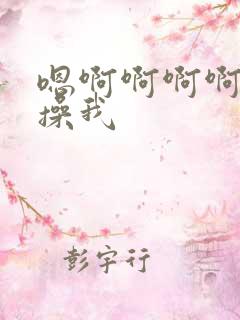 嗯啊啊啊啊
操我
彭宇行